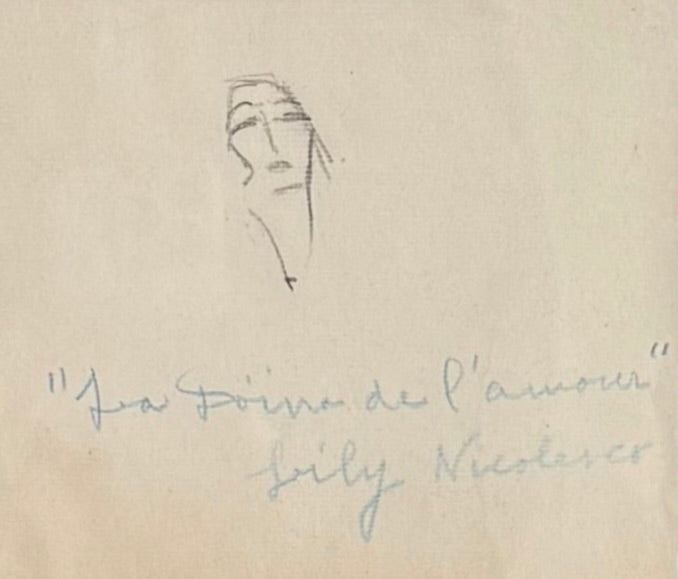 "La Doina de l'amour"
Lily Nicolesco